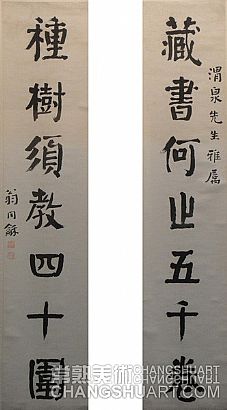 渭泉先生雅屬
藏書何止五千卷
種樹須教四十圍
翁同龢
常熟美術
CHANGSHUART
CHANGSHUART